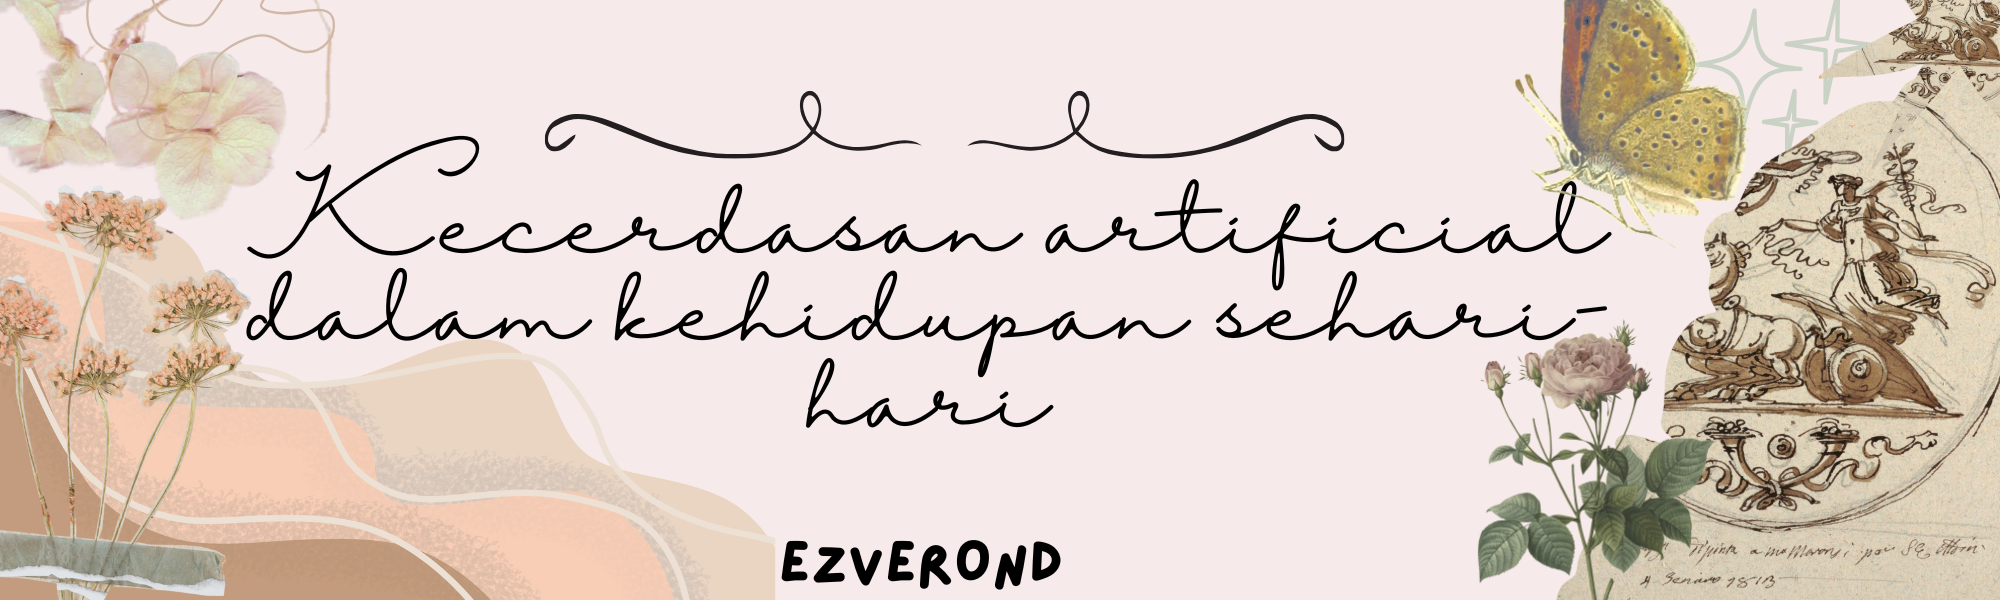 Kecerdasan artificial
dalam kehidupan sehari-
hari
EZVEROND